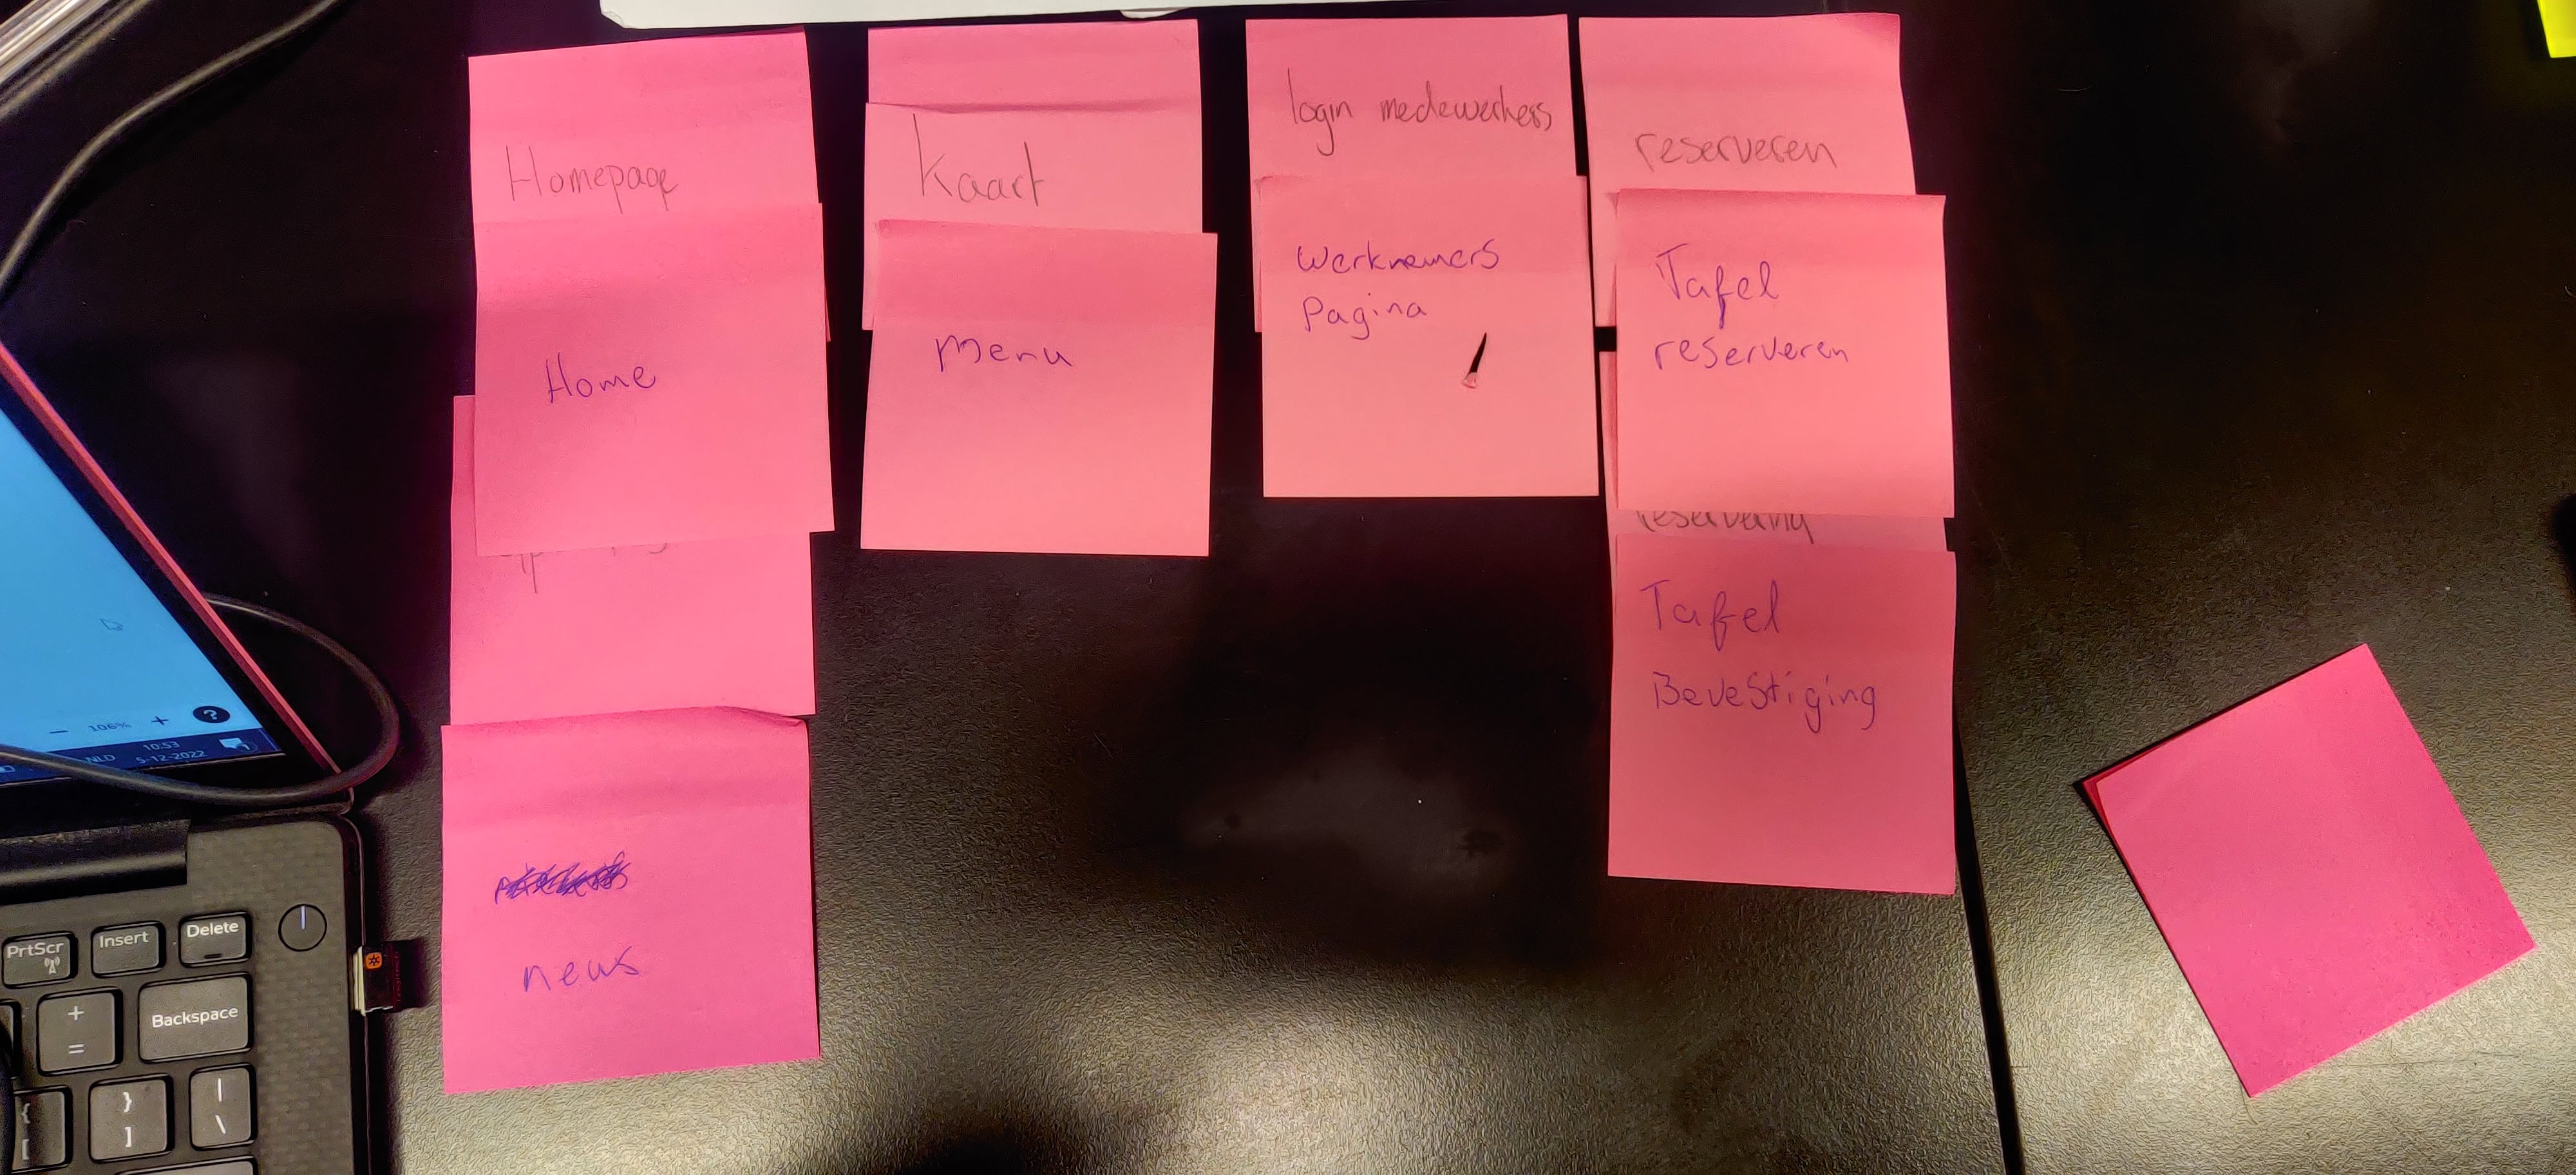 Homepage
Home
news
Kaart
Menu
login medewerkers
werknemers
Pagina
reserveren
Tafel
reserveren
reservering
Tafel
Bevestiging
106%
NLD
10:53
5-12-2022
PrtScr
Insert
Delete
+
=
Backspace
{
[
}
]
|
\